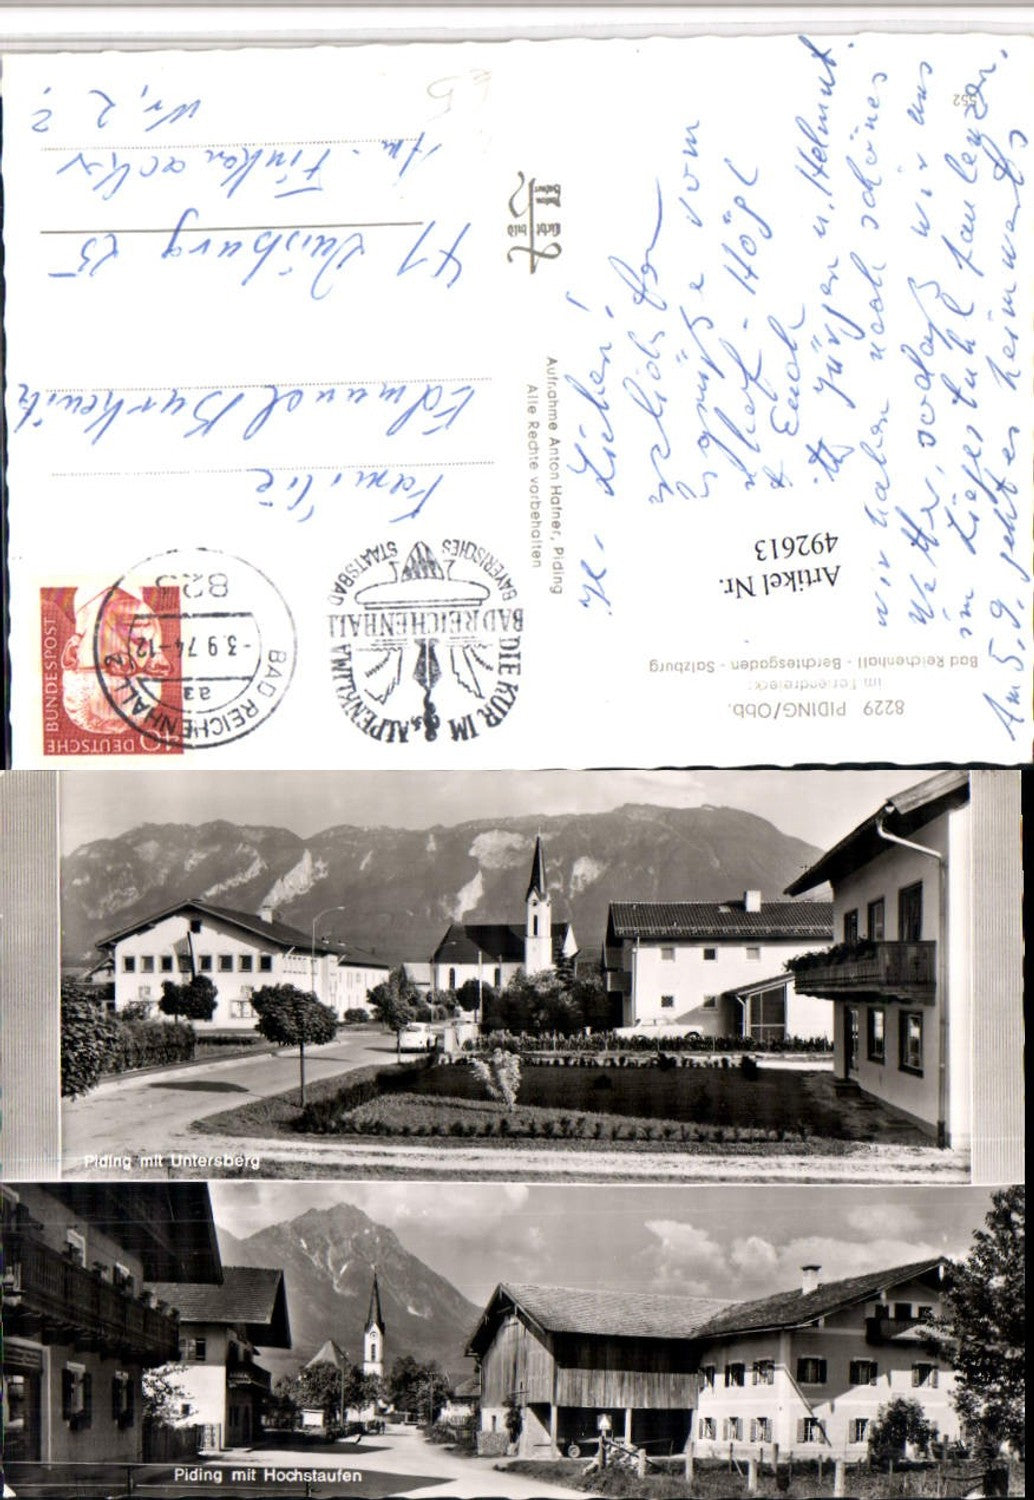 8229 PIDING/Obb.
im Feriendreieck:
Bad Reichenhall - Berchtesgaden - Salzburg
552
Artikel Nr.
492613
Ihr Lieben!
Herzlichste
Grüße vom
Högl
Euch
Jürgen u. Helmut.
wir haben noch schönes
Wetter, sodaß wir uns
im Liegestuhl faulenzen.
Am 5.9. geht es heimwärts
Aufnahme Anton Hafner, Piding
Alle Rechte vorbehalten
DIE KUR IM ALPENKLIMA
BAD REICHENHALL
BAYERISCHES
STAATSBAD
BAD REICHENHALL 2
-3.9.74-12
aa
823
DEUTSCHE
BUNDESPOST
40
Familie
Edmund Burkewitz
41 Duisburg 25
Am Finkenacker
Nr. 22
Piding mit Untersberg
Piding mit Hochstaufen